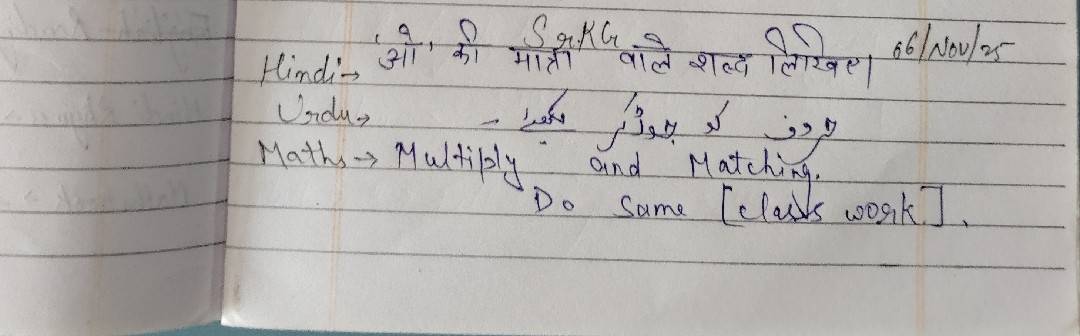 SrKG 06/Nov/25
Hindi→ 'ओ' की मात्रा वाले शब्द लिखिए।
Urdu→ حروف کو جوڑکر لکھیے۔
Maths→ Multiply and Matching.
Do Same [class work].